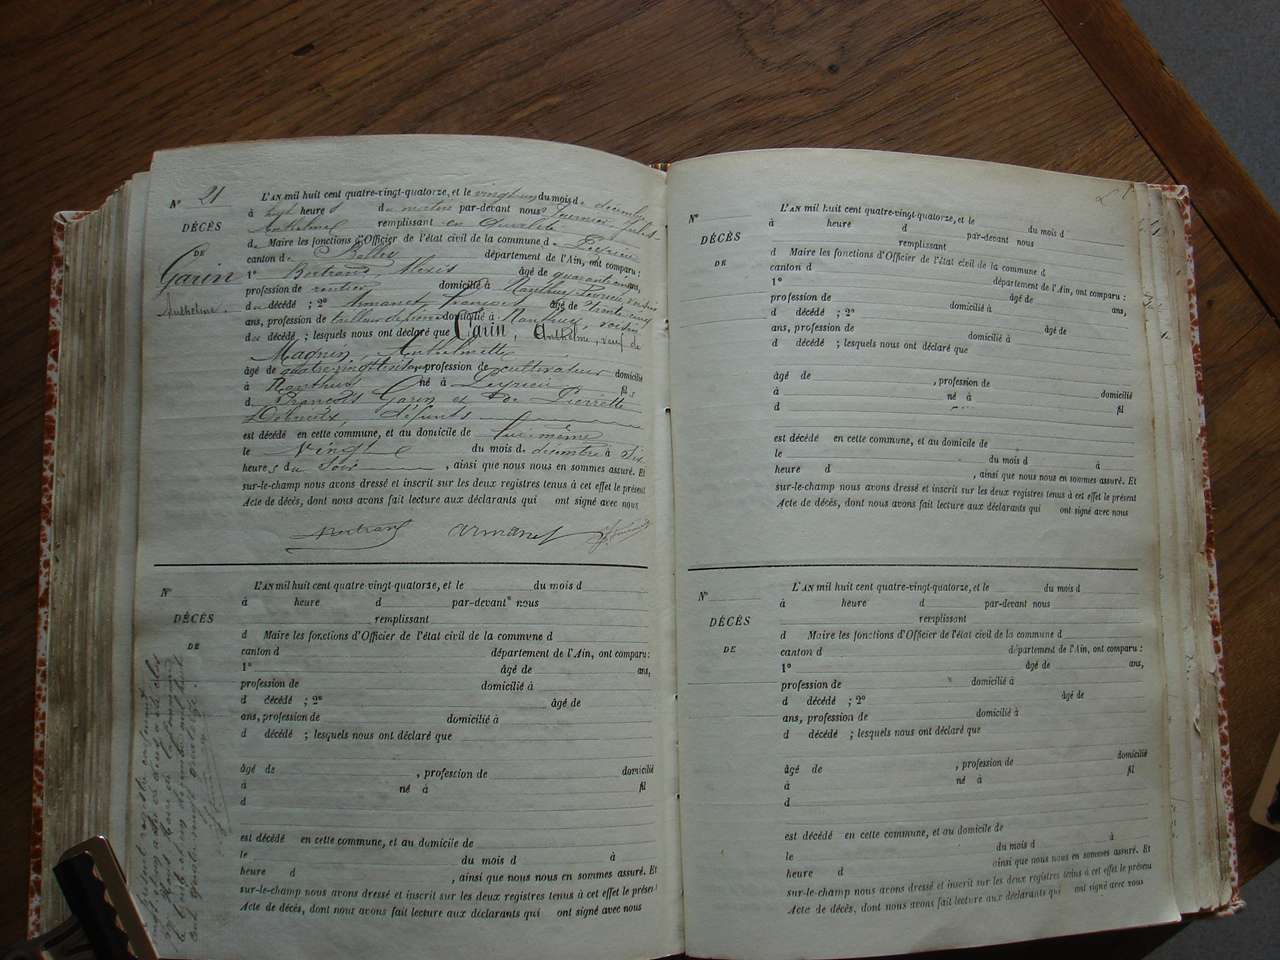 N° 21
DÉCÈS
DE
Garin
Anthelme.
L'AN mil huit cent quatre-vingt-quatorze, et le vingt un du mois de décembre
à sept heures du matin par-devant nous Fournier, Jules
Anthelme remplissant en qualité
de Maire les fonctions d'Officier de l'état civil de la commune de Peyrieu
canton de Belley département de l'Ain, ont comparu :
1° Bertrand, Alexis âgé de quarante ans,
profession de rentier domicilié à Nanthuy, Peyrieu, voisin
du décédé ; 2° Armanet, François âgé de trente cinq
ans, profession de tailleur de domicilié à Nanthuy, voisin
du décédé ; lesquels nous ont déclaré que Garin, Anthelme, veuf de
Magnin Anthelmette
âgé de quatre-vingt ans, profession de cultivateur domicilié
à Nanthuy né à Peyrieu fils
de François Garin et de Pierrette
défunts
est décédé en cette commune, et au domicile de lui-même
le Vingt du mois de décembre à Six
heures du Soir, ainsi que nous nous en sommes assuré. Et
sur-le-champ nous avons dressé et inscrit sur les deux registres tenus à cet effet le présent
Acte de décès, dont nous avons fait lecture aux déclarants qui ont signé avec nous
Bertrand Armanet
N°
DÉCÈS
DE
L'AN mil huit cent quatre-vingt-quatorze, et le du mois d
à heure d par-devant nous
remplissant
d Maire les fonctions d'Officier de l'état civil de la commune d
canton d département de l'Ain, ont comparu :
1° âgé de ans,
profession de domicilié à
d décédé ; 2° âgé de
ans, profession de domicilié à
d décédé ; lesquels nous ont déclaré que
âgé de , profession de domicilié
à né à fil
d
est décédé en cette commune, et au domicile de
le du mois d à
heure d , ainsi que nous nous en sommes assuré. Et
sur-le-champ nous avons dressé et inscrit sur les deux registres tenus à cet effet le présent
Acte de décès, dont nous avons fait lecture aux déclarants qui ont signé avec nous
N°
DÉCÈS
DE
L'AN mil huit cent quatre-vingt-quatorze, et le du mois d
à heure d par-devant nous
remplissant
d Maire les fonctions d'Officier de l'état civil de la commune d
canton d département de l'Ain, ont comparu :
1° âgé de ans,
profession de domicilié à
d décédé ; 2° âgé de
ans, profession de domicilié à
d décédé ; lesquels nous ont déclaré que
âgé de , profession de domicilié
à né à fil
d
est décédé en cette commune, et au domicile de
le du mois d à
heure d , ainsi que nous nous en sommes assuré. Et
sur-le-champ nous avons dressé et inscrit sur les deux registres tenus à cet effet le présent
Acte de décès, dont nous avons fait lecture aux déclarants qui ont signé avec nous
N°
DÉCÈS
DE
L'AN mil huit cent quatre-vingt-quatorze, et le du mois d
à heure d par-devant nous
remplissant
d Maire les fonctions d'Officier de l'état civil de la commune d
canton d département de l'Ain, ont comparu :
1° âgé de ans,
profession de domicilié à
d décédé ; 2° âgé de
ans, profession de domicilié à
d décédé ; lesquels nous ont déclaré que
âgé de , profession de domicilié
à né à fil
d
est décédé en cette commune, et au domicile de
le du mois d à
heure d ainsi que nous nous en sommes assuré. Et
sur-le-champ nous avons dressé et inscrit sur les deux registres tenus à cet effet le présent
Acte de décès, dont nous avons fait lecture aux déclarants qui ont signé avec nous